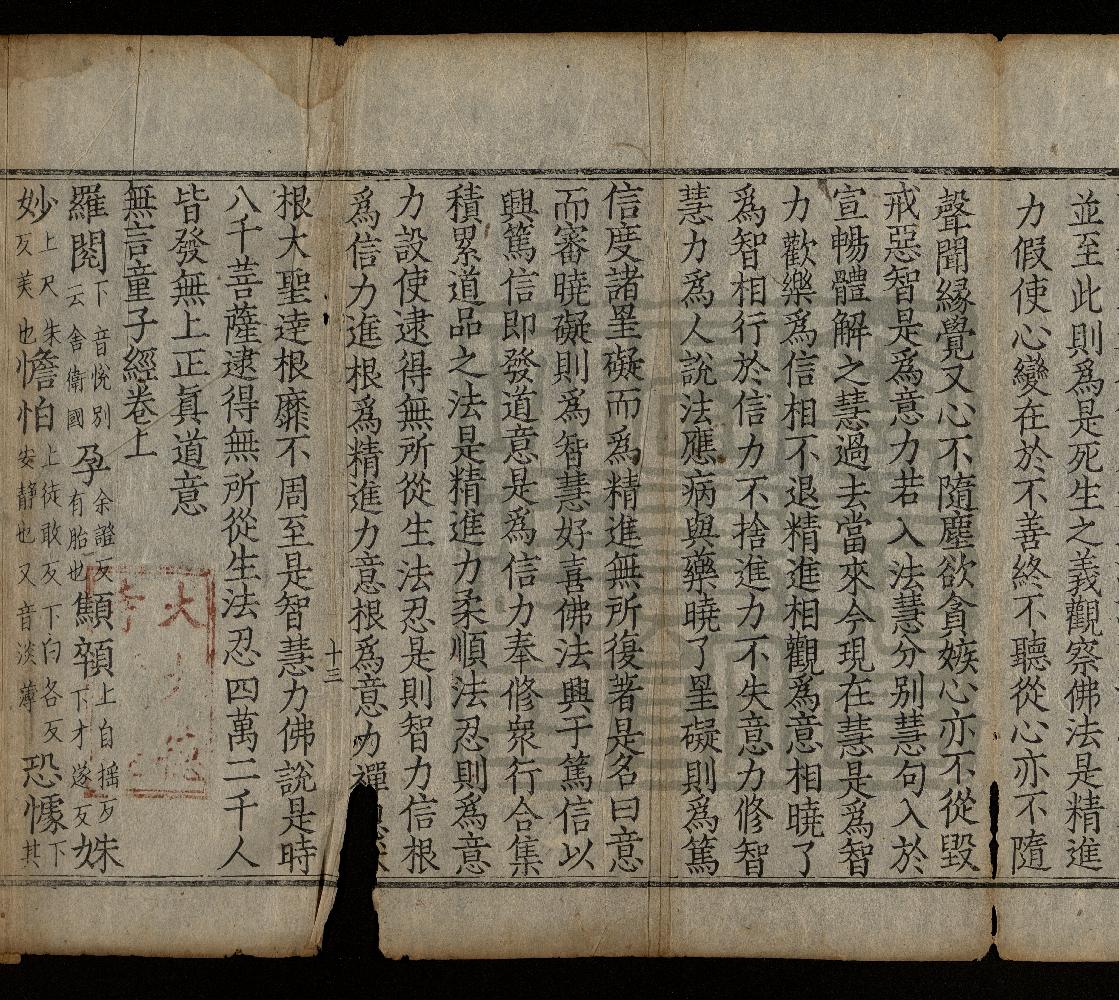 並至此則為是死生之義觀察佛法是精進
力假使心變在於不善終不聽從心亦不隨
聲聞縁覺又心不隨塵欲貪嫉心亦不從毀
戒惡智是為意力若入法慧分别慧句入於
宣暢體解之慧過去當來今現在慧是為智
力歡樂為信相不退精進相觀為意相曉了
為智相行於信力不捨進力不失意力修智
慧力為人說法應病與藥曉了罣礙則為篤
信度諸罣礙而為精進無所復著是名曰意
而審曉礙則為智慧好喜佛法興于篤信以
興篤信即發道意是為信力奉修衆行合集
積累道品之法是精進力柔順法忍則為意
力設使逮得無所從生法忍是則智力信根
為信力進根為精進力意根為意力禪
十三
根大聖達根靡不周至是智慧力佛說是時
八千菩薩逮得無所從生法忍四萬二千人
皆發無上正真道意
無言童子經卷上
羅閱下音悅別云舍衛國孕余證反有胎也顦顇上自摇反下才遂反姝
上尺朱反美也妙憺怕上徒敢反下白各反安靜也又音淡薄恐懅下其